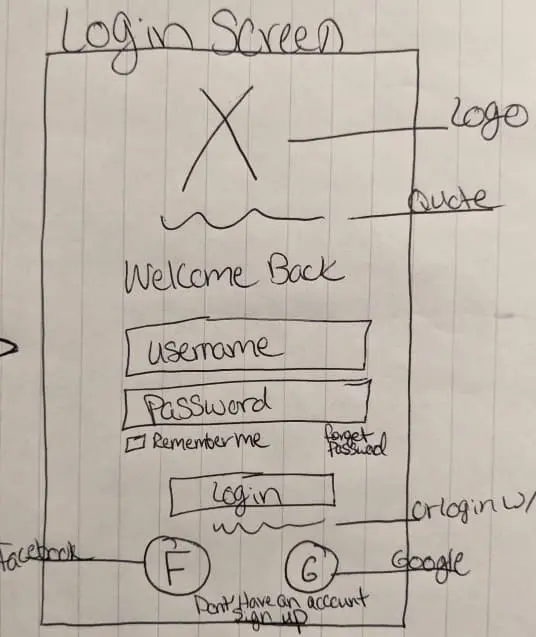 Login Screen
Logo
Quote
Welcome Back
username
Password
Remember me
forget
Password
Login
or login w/
Facebook
F
G
Google
Dont Have an account
sign up